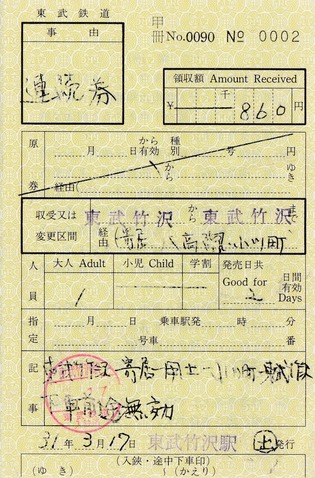 東武鉄道
甲
冊 No.0090 № 0002
事由
連続券
領収額 Amount Received
¥ 千 860 円
原券
から 種 円
月 日有効 別 号 ゆき
経由 から
収受又は 東武竹沢 から 東武竹沢 まで
変更区間 経由 (寄居 八高線 小川町
人員
大人 Adult 小児 Child 学割 発売日共
1 Good for 2 日間有効 Days
指定
月 日 乗車駅発 時 分
号車 番
記事
東武竹沢 寄居 用土 小川町
下車前途無効
31年 3月 17日 東武竹沢駅 土 発行
(入鋏・途中下車印)
(ゆき) 〜 (かえり)